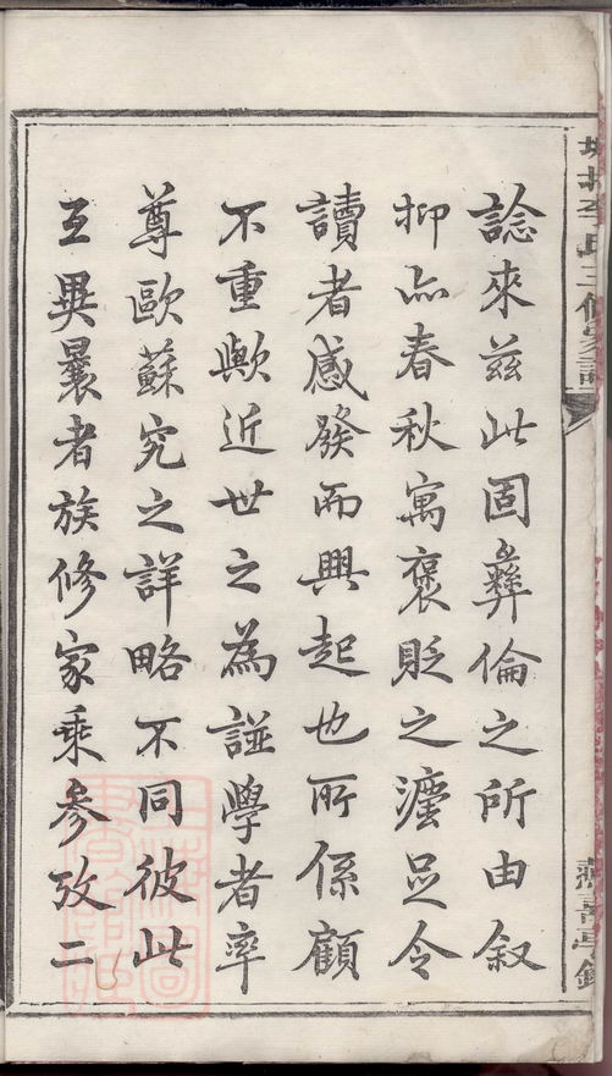 諗來茲此固彝倫之所由叙
抑亦春秋寓褒貶之灋足令
讀者感發而興起也所係顧
不重歟近世之為諩學者率
尊歐蘇究之詳略不同彼此
互異曩者族修家乘參攷二